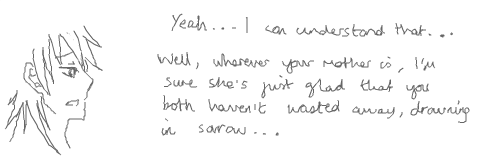 Yeah... I can understand that...
Well, wherever your mother is, I'm
sure she's just glad that you
both haven't wasted away, drowning
in sorrow...